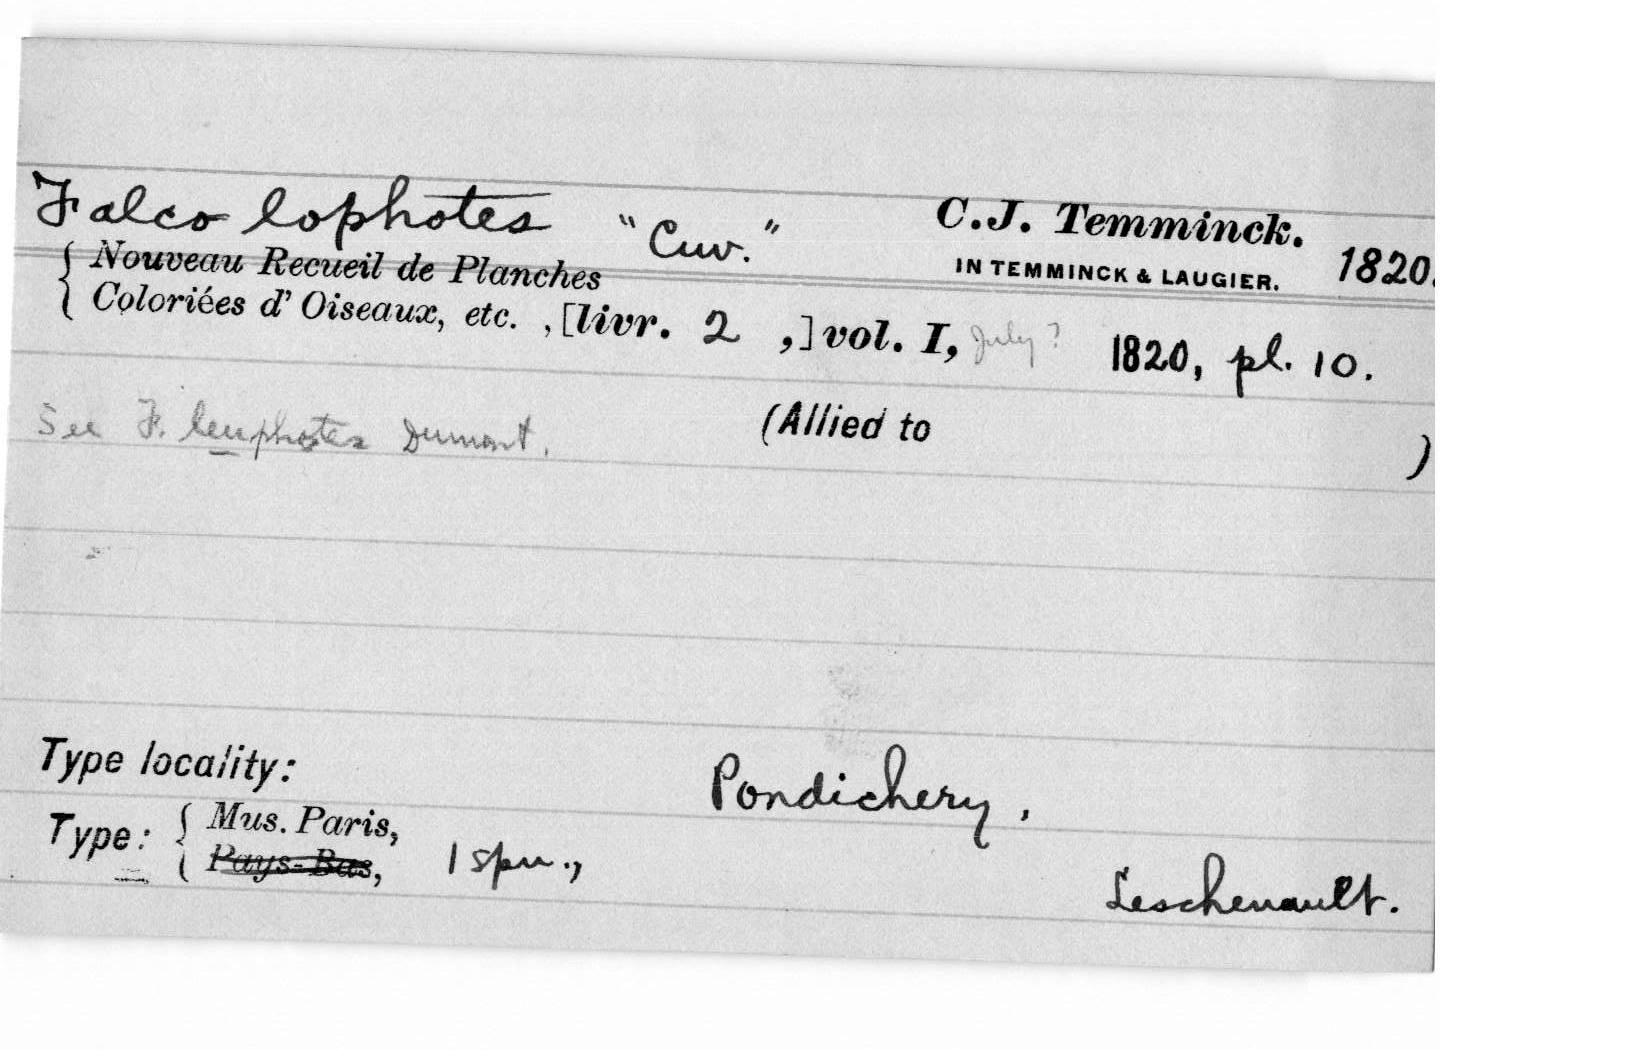 Falco lophotes "Cuv." C.J. Temminck.
IN TEMMINCK & LAUGIER. 1820.
Nouveau Recueil de Planches
Coloriées d' Oiseaux, etc. , [livr. 2 ,] vol. I, July? 1820, pl. 10.
See F. leuphotes Dumont. (Allied to )
Type locality: Pondichery,
Type: { Mus. Paris,
Pays-Bas, 1 spm., Leschenault.